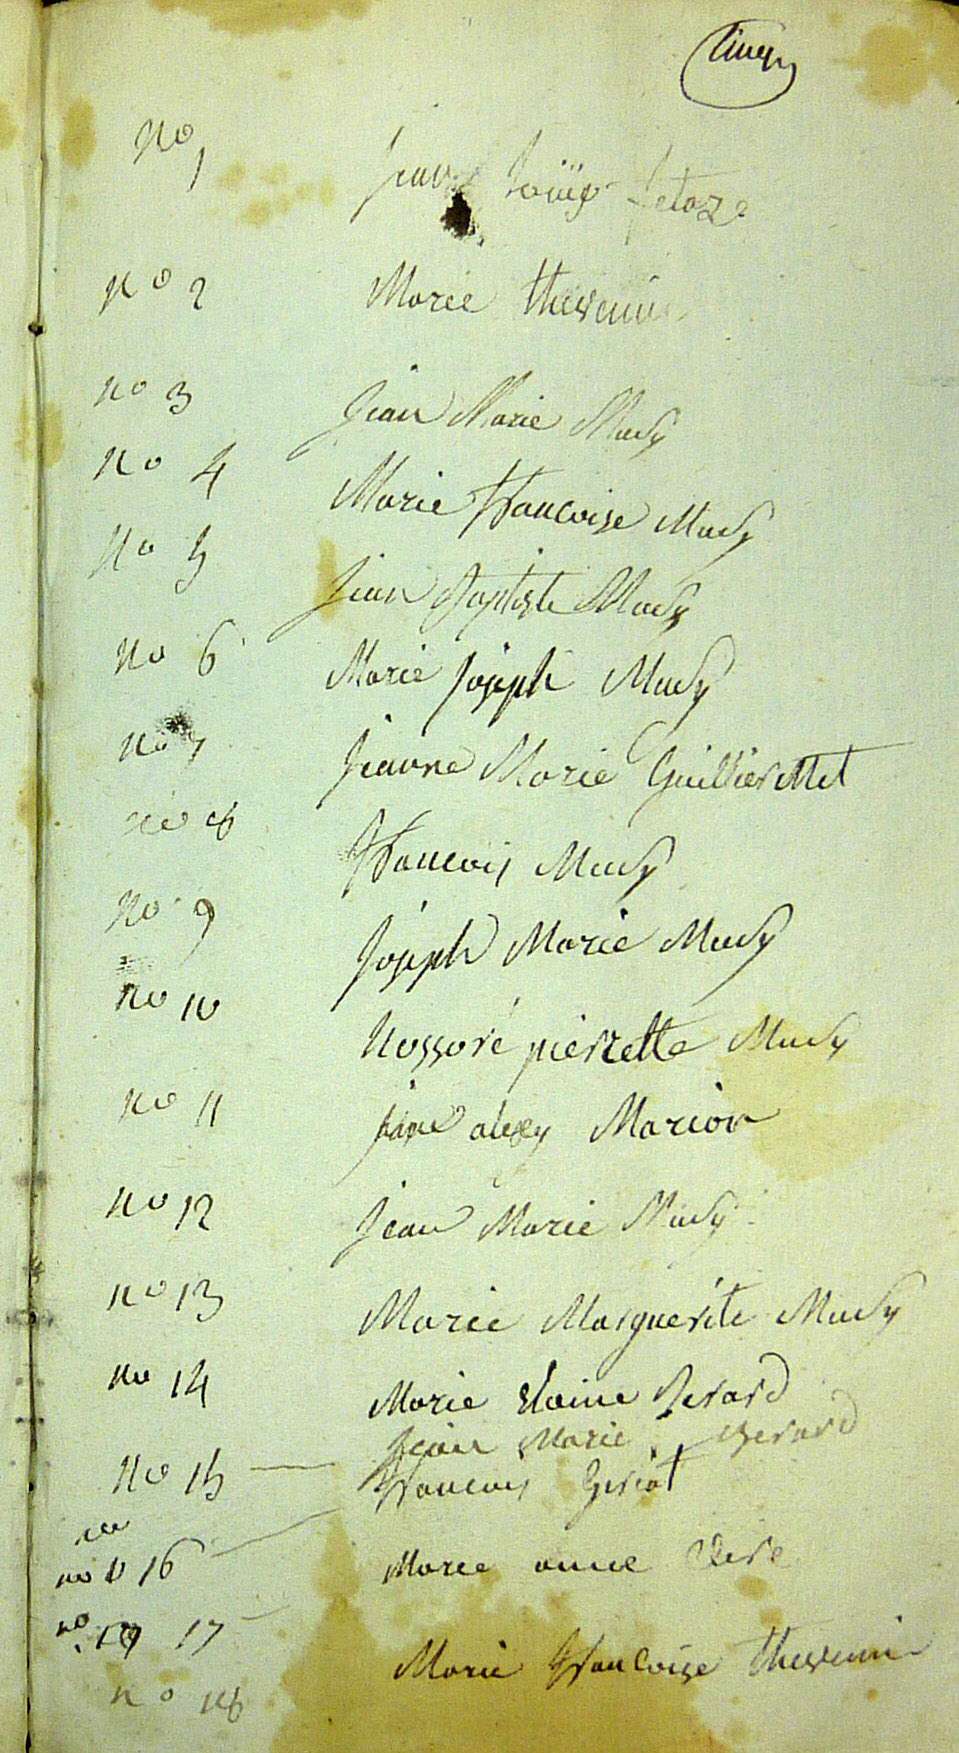 no 1 Jean
no 2 Marie thevenin
no 3 Jean Marie Mudy
no 4 Marie francoise Mudy
no 5 Jean Baptiste Mudy
no 6 Marie Joseph Mudy
no 7 Jeanne Marie Guillermet
no 8 francois Mudy
no 9 Joseph Marie Mudy
no 10 pierrette Mudy
no 11 alexy Marion
no 12 Jean Marie Mudy
no 13 Marie Marguerite Mudy
no 14 Marie Berard
Jean Marie Berard
no 15 francois
no 16 Marie anne
no 17
no 18 Marie francoise thevenin